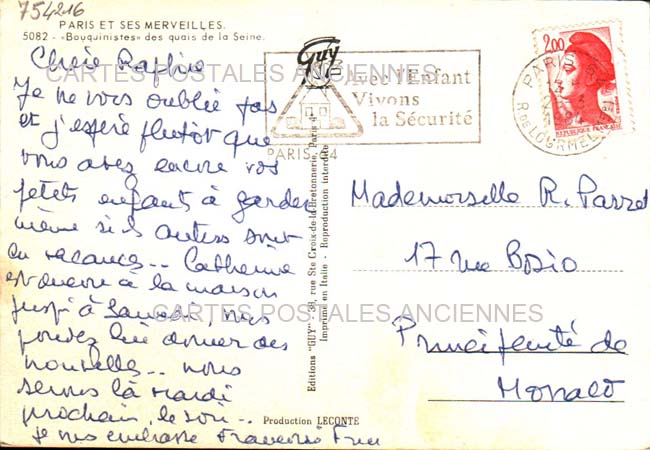 754216
PARIS ET SES MERVEILLES.
5082 - «Bouquinistes» des quais de la Seine.
Guy
Avec l'Enfant
Vivons
la Sécurité
PARIS
2,00
REPUBLIQUE FRANÇAISE
PARIS
R. DE LOURMEL
CARTES POSTALES ANCIENNES
Je ne vous oublie pas
et j'espère plutôt que
vous avez encore vos
petits enfants à garder
même si les autres sont
en vacances.. Catherine
est encore à la maison
jusqu'à Samedi, vous
pouvez lui donner des
nouvelles.. nous
serons là Mardi
prochain, le soir..
je vous embrasse
Editions "GUY" - 39, rue Ste Croix-de-la-Bretonnerie, Paris 4e
Imprimé en Italie - Reproduction interdite
Mademoiselle R.
17 rue Bosio
Principauté de
Monaco
CARTES POSTALES ANCIENNES
Production LECONTE